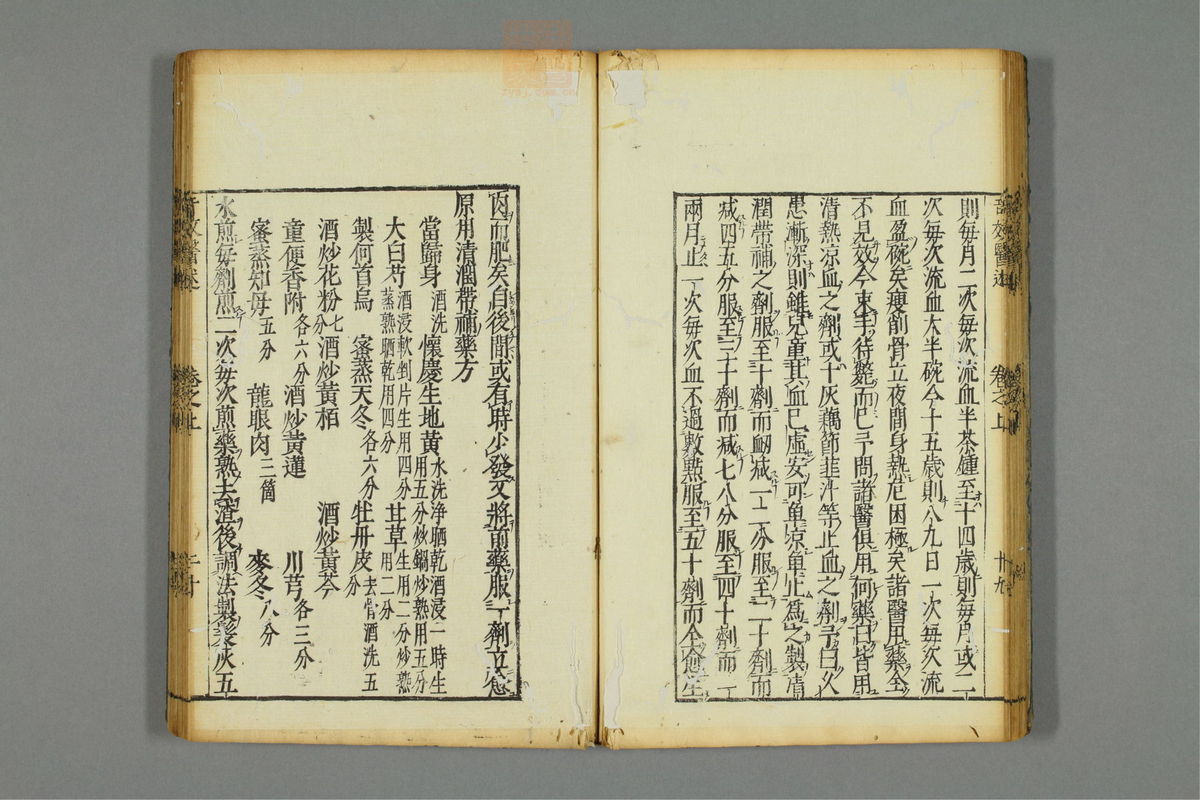 則每月二次每次流血半茶鍾至十四歲則每月或二
次每次流血大半碗今十五歲則八九日一次每次流
血盈碗矣瘦削骨立夜間身熱尫困極矣諸醫用藥全
不見效今束手待斃而已予問諸醫俱用何藥曰皆用
清熱凉血之劑或十灰藕節韮汁等止血之劑予曰久
患漸深則雖兒童其血已虛安可单凉单止爲之製清
潤帶補之劑服至十劑而衂減一二分服至二十劑而
減四五分服至三十劑而減七八分服至四十劑而一
兩月止一次每次血不過數點服至五十劑而全愈生
卷之上
廿九
肉血肥矣自後間或有時少發又將前藥服一劑立愈
原用清潤帶補藥方
當歸身酒洗 懷慶生地黃水洗浄晒乾酒浸一時生用五分炒鍋炒熟用五分
大白芍酒浸軟剉片生用四分蒸熟晒乾用四分 甘草生用二分炒熟用二分
製何首烏 蜜蒸天冬各六分 牡丹皮去骨酒洗五分
酒炒花粉七分 酒炒黃栢 酒炒黃芩
童便香附各六分 酒炒黃連 川芎各三分
蜜蒸知母五分 龍眼肉三箇 麥冬八分
水煎每劑煎二次每次煎藥熟去渣後調法製髮灰五
卷之上
三十